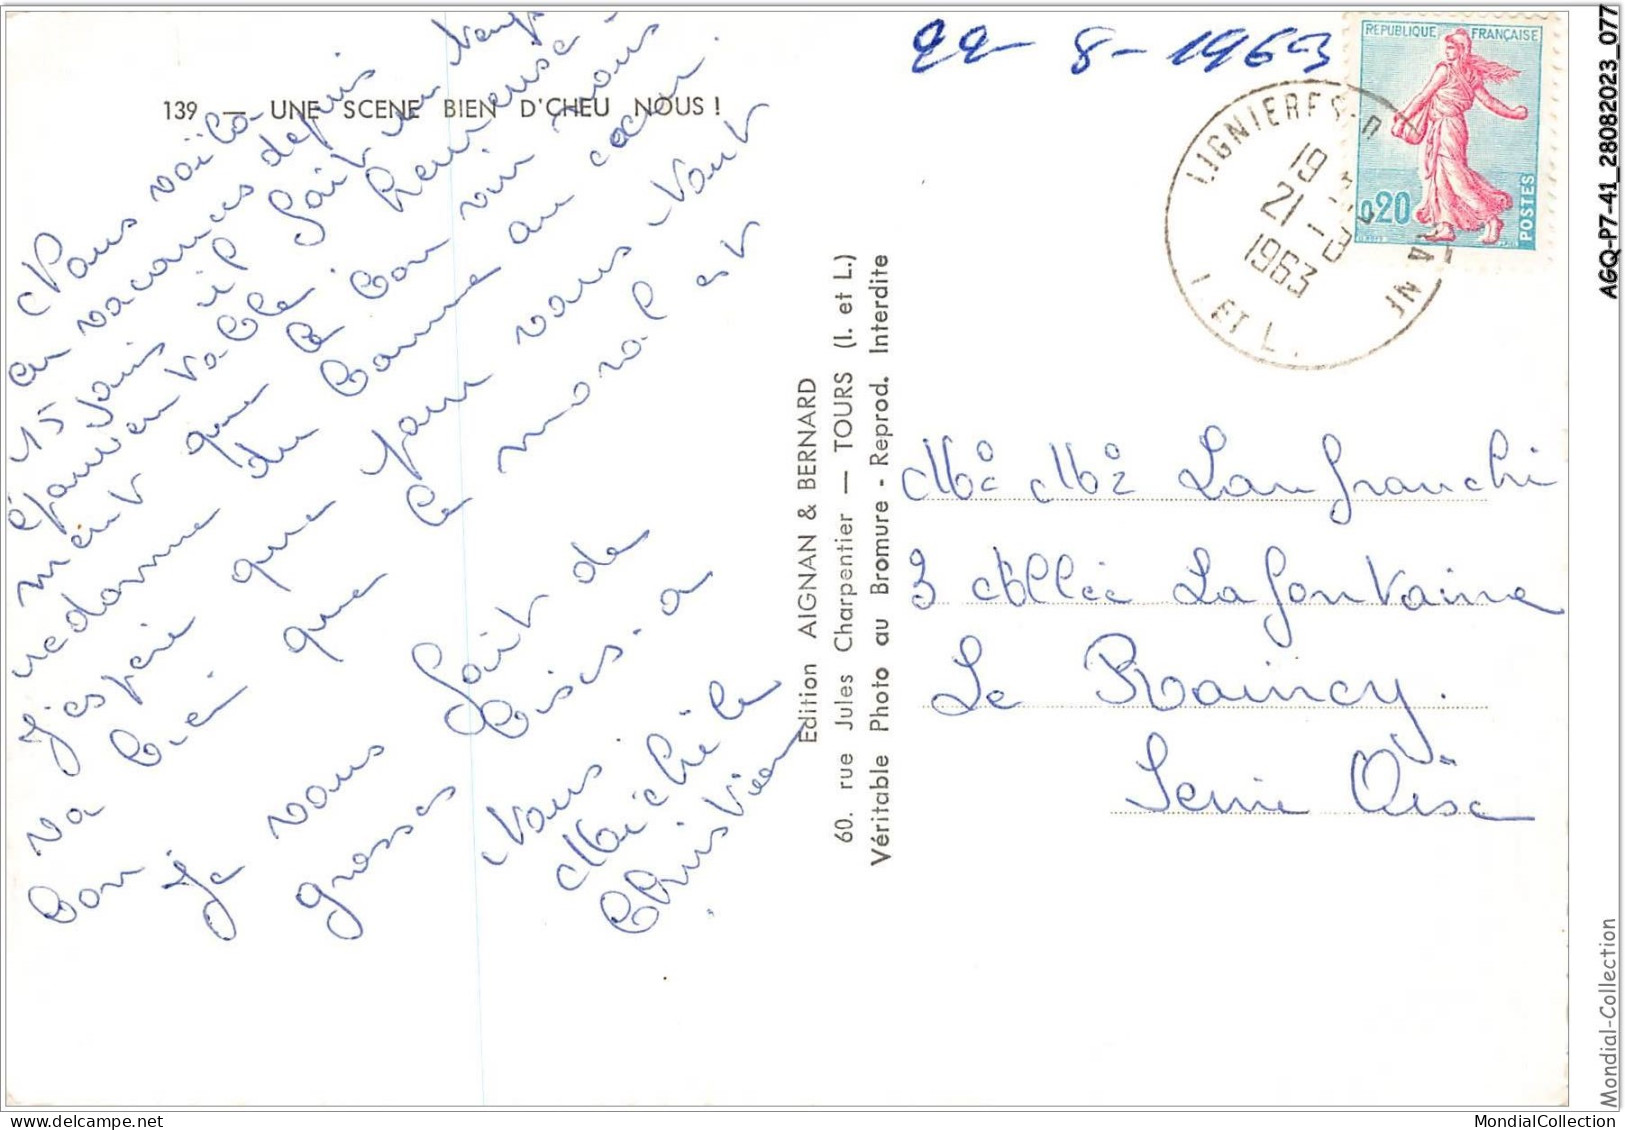 139 — UNE SCENE BIEN D'CHEU NOUS !
Nous voila
en vacances depuis
15 jours il fait un temps
épouvantable heureuse
ment que le bon vin nous
redonne du baume au coeur.
J'espère que pour vous tout
va bien que le moral est
bon
je vous fait de
grosses bises. a
vous
Michèle
Christian
Edition AIGNAN & BERNARD
60. rue Jules Charpentier — TOURS (I. et L.)
Véritable Photo au Bromure - Reprod. Interdite
22-8-1963
REPUBLIQUE FRANÇAISE
0,20
POSTES
LIGNIERES-D
19
21 -8
1963
I. ET L.
Mc M2 Lanfranchi
3 Allée Lafontaine
Le Raincy.
Seine Oise
AGQ-P7-41_28082023_077
Mondial-Collection
MondialCollection